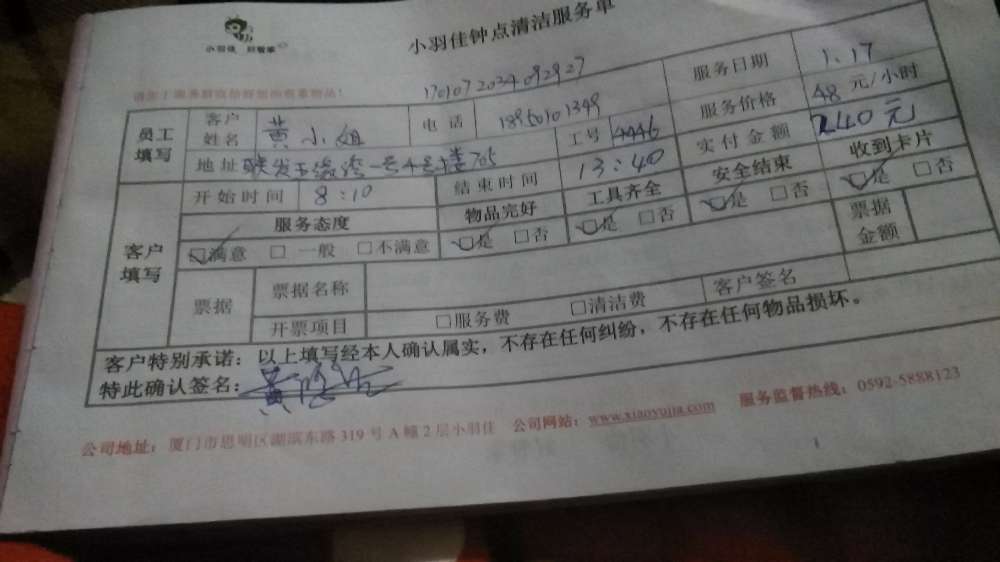 小羽佳 好管家
小羽佳钟点清洁服务单
17010720340 92927
服务日期 1.17
员工填写 客户姓名 黄小姐 电话 18950101349 服务价格 48 元/小时
地址 联发五缘湾一号4号楼705 工号 4446 实付金额 240元
客户填写 开始时间 8:10 结束时间 13:40 安全结束 收到卡片
服务态度 物品完好 工具齐全 ☑是 □否 ☑是 □否
☑满意 □一般 □不满意 ☑是 □否 ☑是 □否 票据金额
票据 票据名称 客户签名
开票项目 □服务费 □清洁费
客户特别承诺：以上填写经本人确认属实，不存在任何纠纷，不存在任何物品损坏。
特此确认签名：黄
公司地址：厦门市思明区湖滨东路 319 号 A 幢 2 层小羽佳 公司网站：www.xiaoyujia.com 服务监督热线：0592-5888123
1